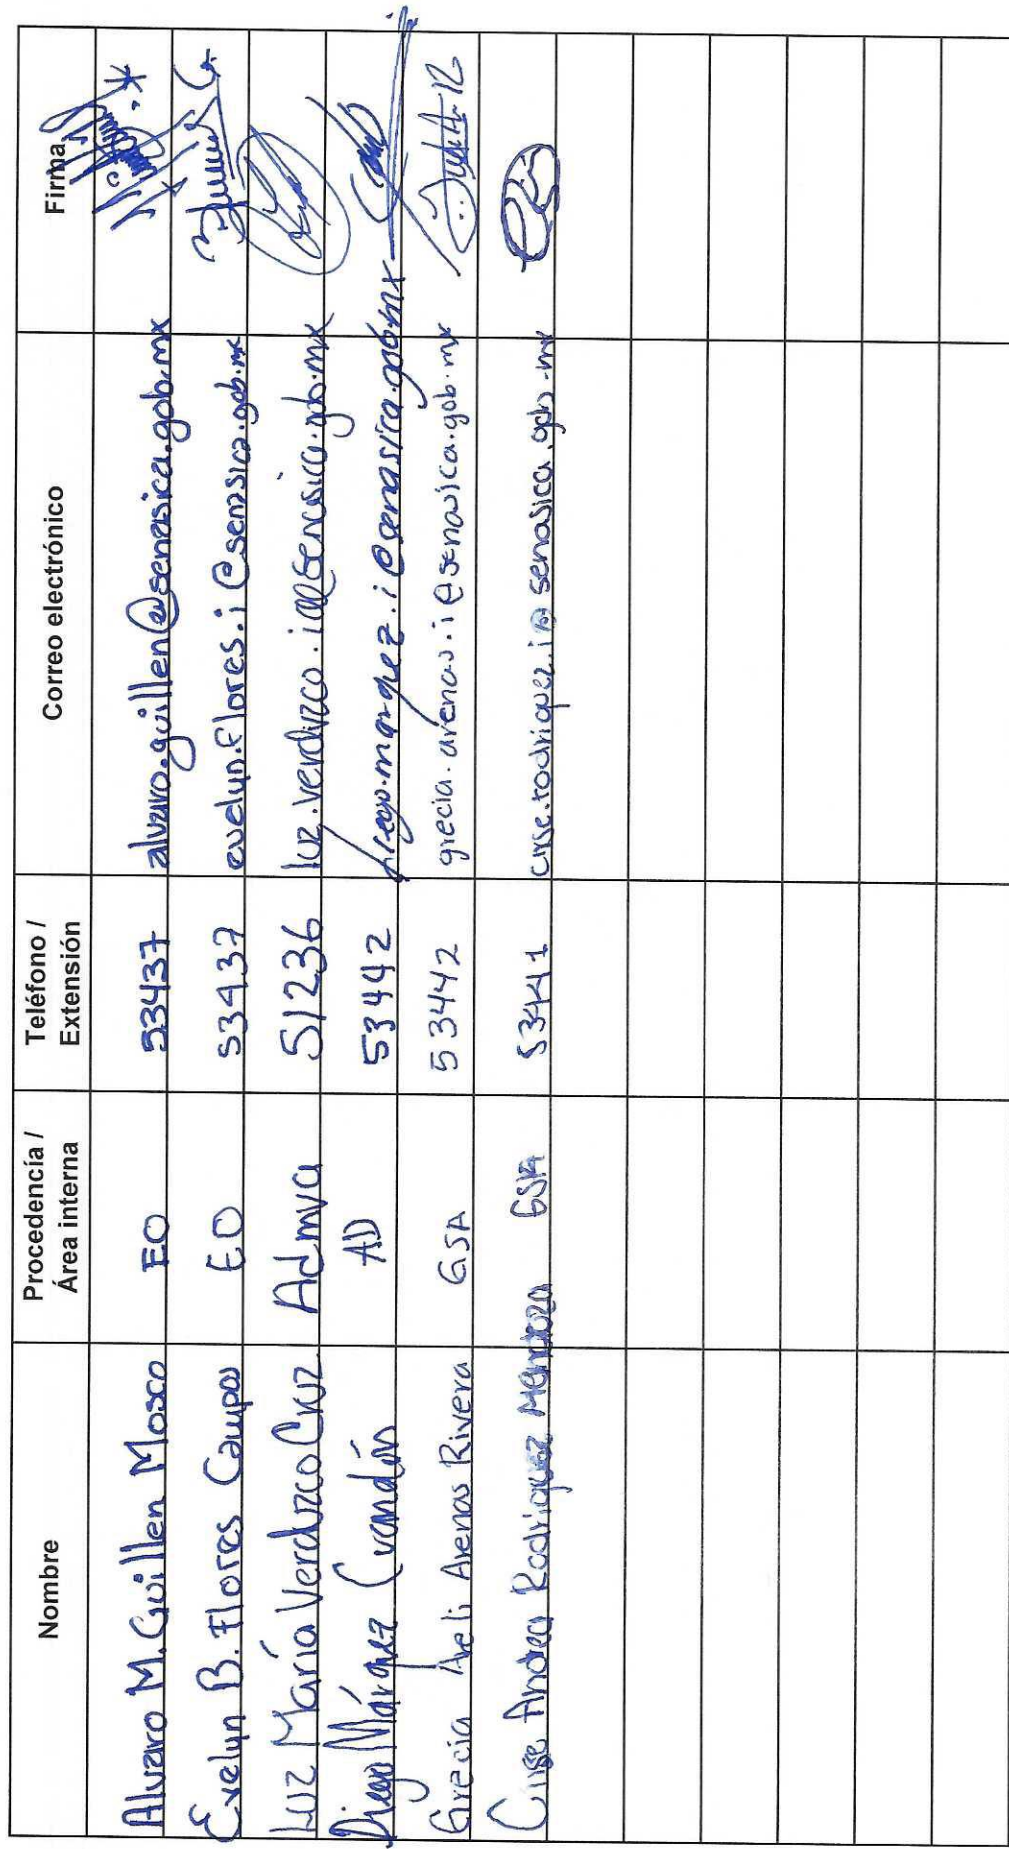 Nombre Procedencia / Área interna Teléfono / Extensión Correo electrónico Firma
Alvaro M. Guillen Mosco EO 53437 alvaro.guillen@senasica.gob.mx
Evelyn B. Flores Campos EO 53437 evelyn.flores.i@senasica.gob.mx
Luz María Verduzco Cruz Admva 51236 luz.verduzco.i@senasica.gob.mx
Diego Márquez AD 53442 diego.marquez.i@senasica.gob.mx
Grecia Areli Arenas Rivera GSA 53442 grecia.arenas.i@senasica.gob.mx
Andrea Rodriguez Mendoza GSIA 53441 senasica.gob.mx